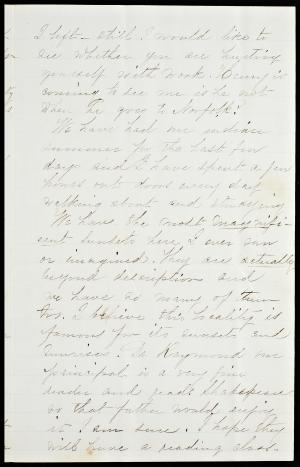 I left - still I would like to
see whether you are hurting
yourself with work. Henry is
coming to see me is he not
when he goes to Norfolk?
We have had our indian
summer for the last few
days and I have spent a few
hours out doors every day
walking about and studying
We have the most magnifi-
cent sunsets here I ever saw
or imagined. They are actually
beyond description and
we have so many of them
too. I believe this locality is
famous for its sunsets and
sunrises. Dr Raymond our
principal is a very fine
reader and reads Shakespeare
so that father would enjoy
it I am sure. I hope they
will have a reading class